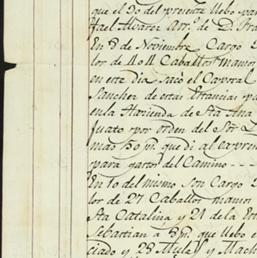 que el 30 del presente llebo
fael Alvarez Arr.º de D. Fra
En 8 de Noviembre Cargo
lor de 404 Caballos mansos
en este dia Sacó el Caporal
Sanchez de estas Estancias pa
en la Hacienda de Sta Ana
juato por orden del Sõr
mas 50 p.s que di al expre
para gastos del Camino
En 10 del mismo Son Cargo
lor de 27 Caballos mansos
Sta Catalina y 21 de la
Sebastian a 8 p.s que llebo el
ciado y 28 Mulas y Mach